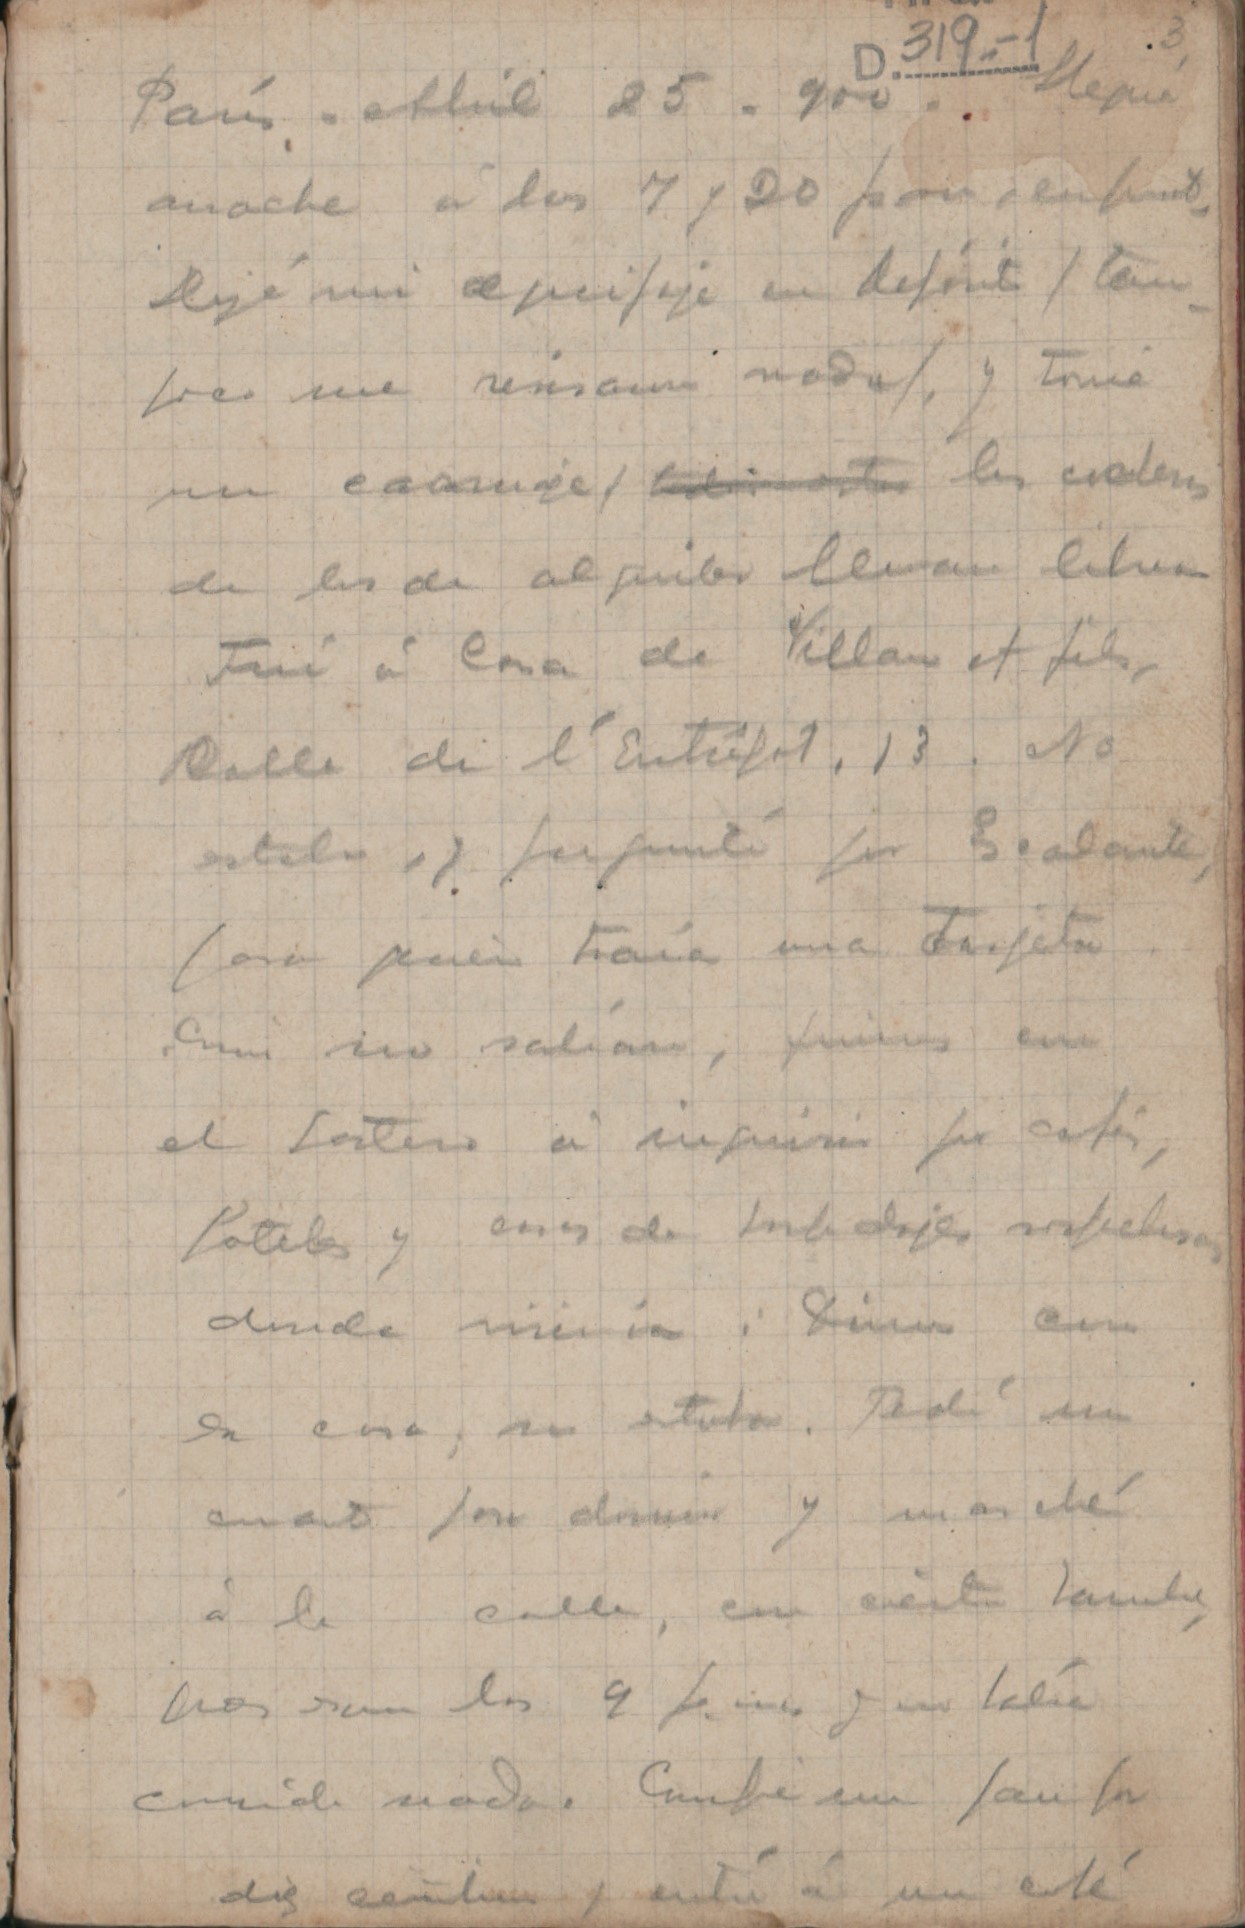 D. 319.-1
3
París. Abril 25. 900. Llegué
anoche á las 7 y 20 p.m., en punto.
Dejé mi equipaje en depósito / tam-
poco me revisaron nada /, y tomé
un carruaje / los cocheros
de los de alquiler llevan
Fuí á casa de Villar et fils,
Calle de l'Entrepôt, 13. No
estaba, y pregunté por Escalante,
para quien traía una tarjeta.
Como no sabían, fuimos con
el portero á inquirir por cafés,
hoteles y casas de hospedajes
donde vivía: Dimos con
la casa; no estaba. Pedí un
cuarto para dormir y marché
á la calle, con cierta hambre,
pues eran las 9 p.m. y no había
comido nada. Compré un pan por
diez céntimos y entré á un café